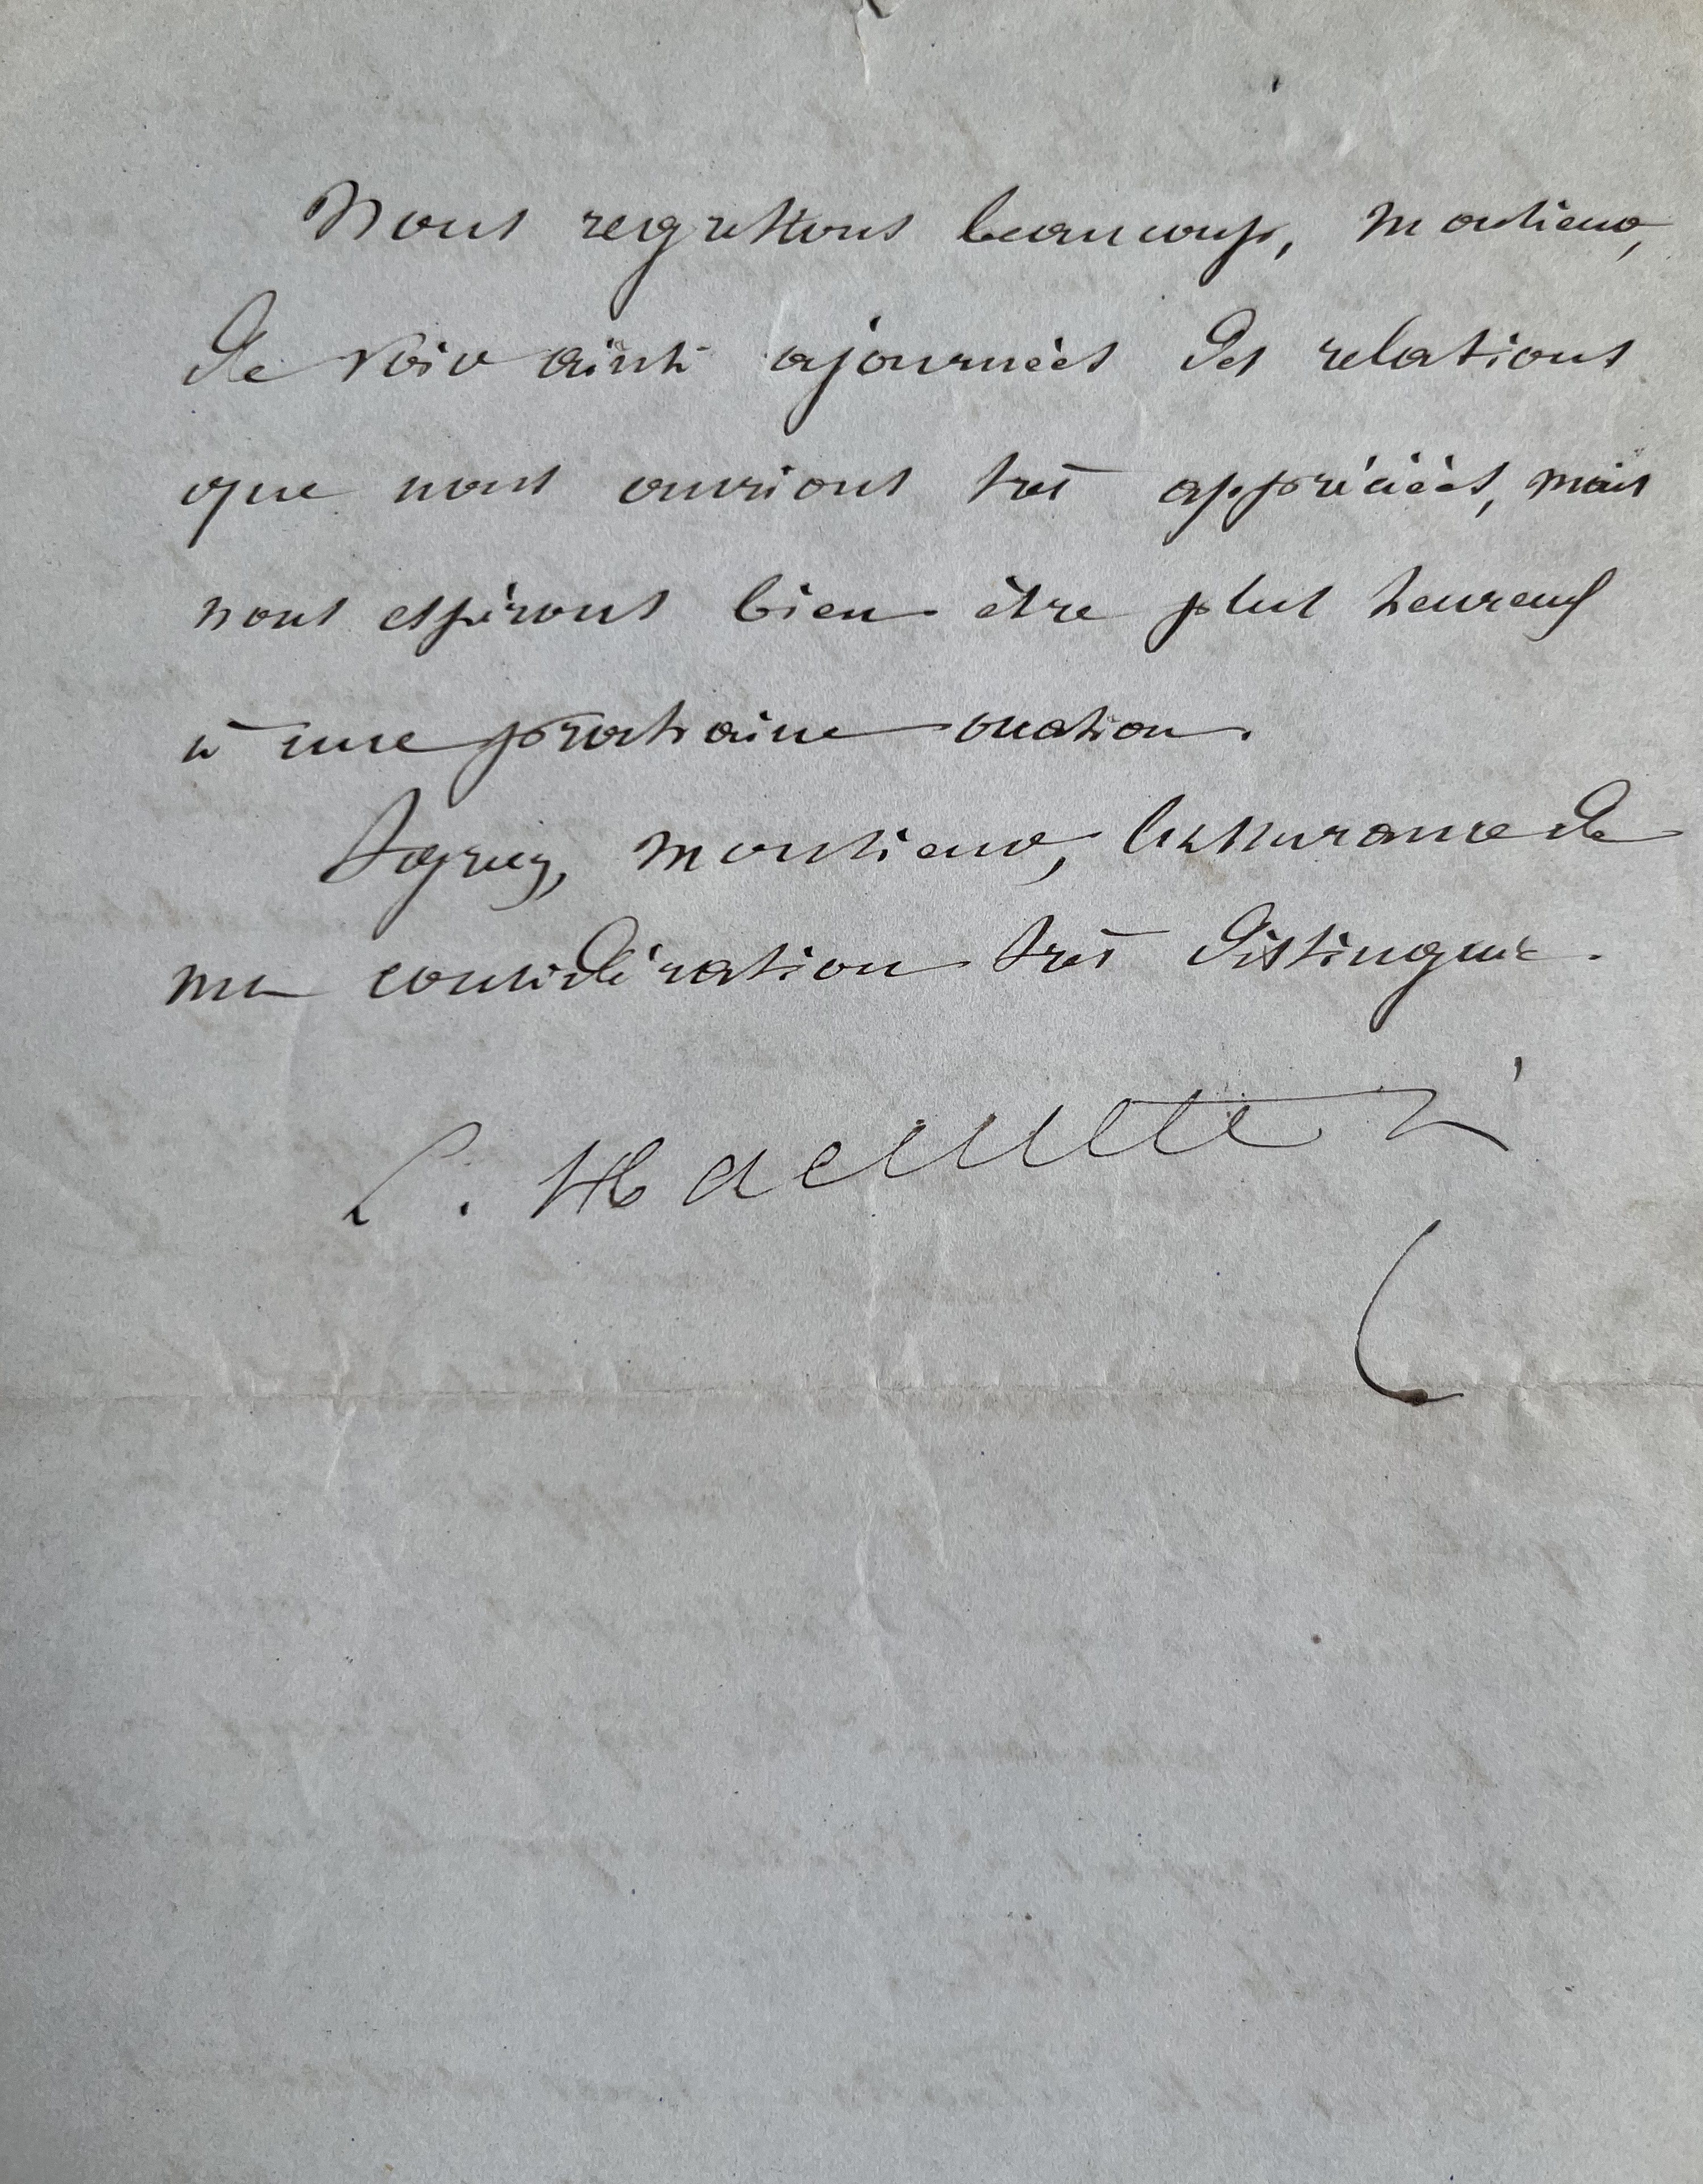 Nous regrettons beaucoup, Monsieur,
de voir ainsi ajournées des relations
que nous aurions très appréciées, mais
nous espérons bien être plus heureux
à une prochaine occasion.
Agréez, Monsieur, l'assurance de
ma considération très distinguée.
L. Hachette